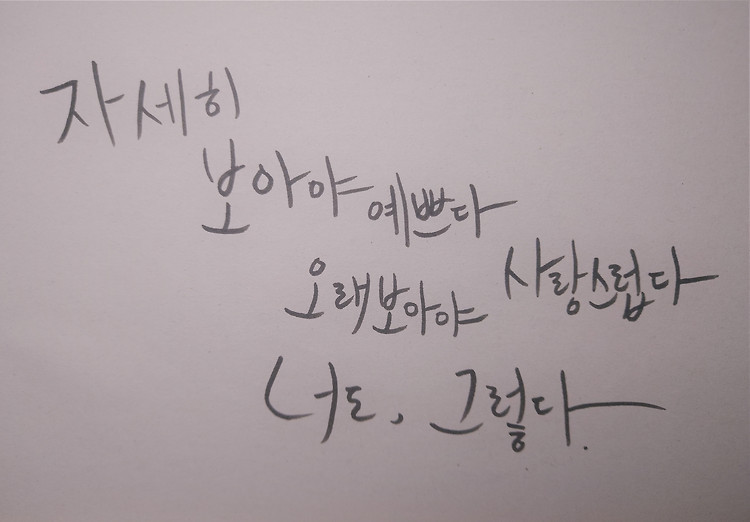 자세히
보아야 예쁘다
오래 보아야 사랑스럽다
너도, 그렇다.